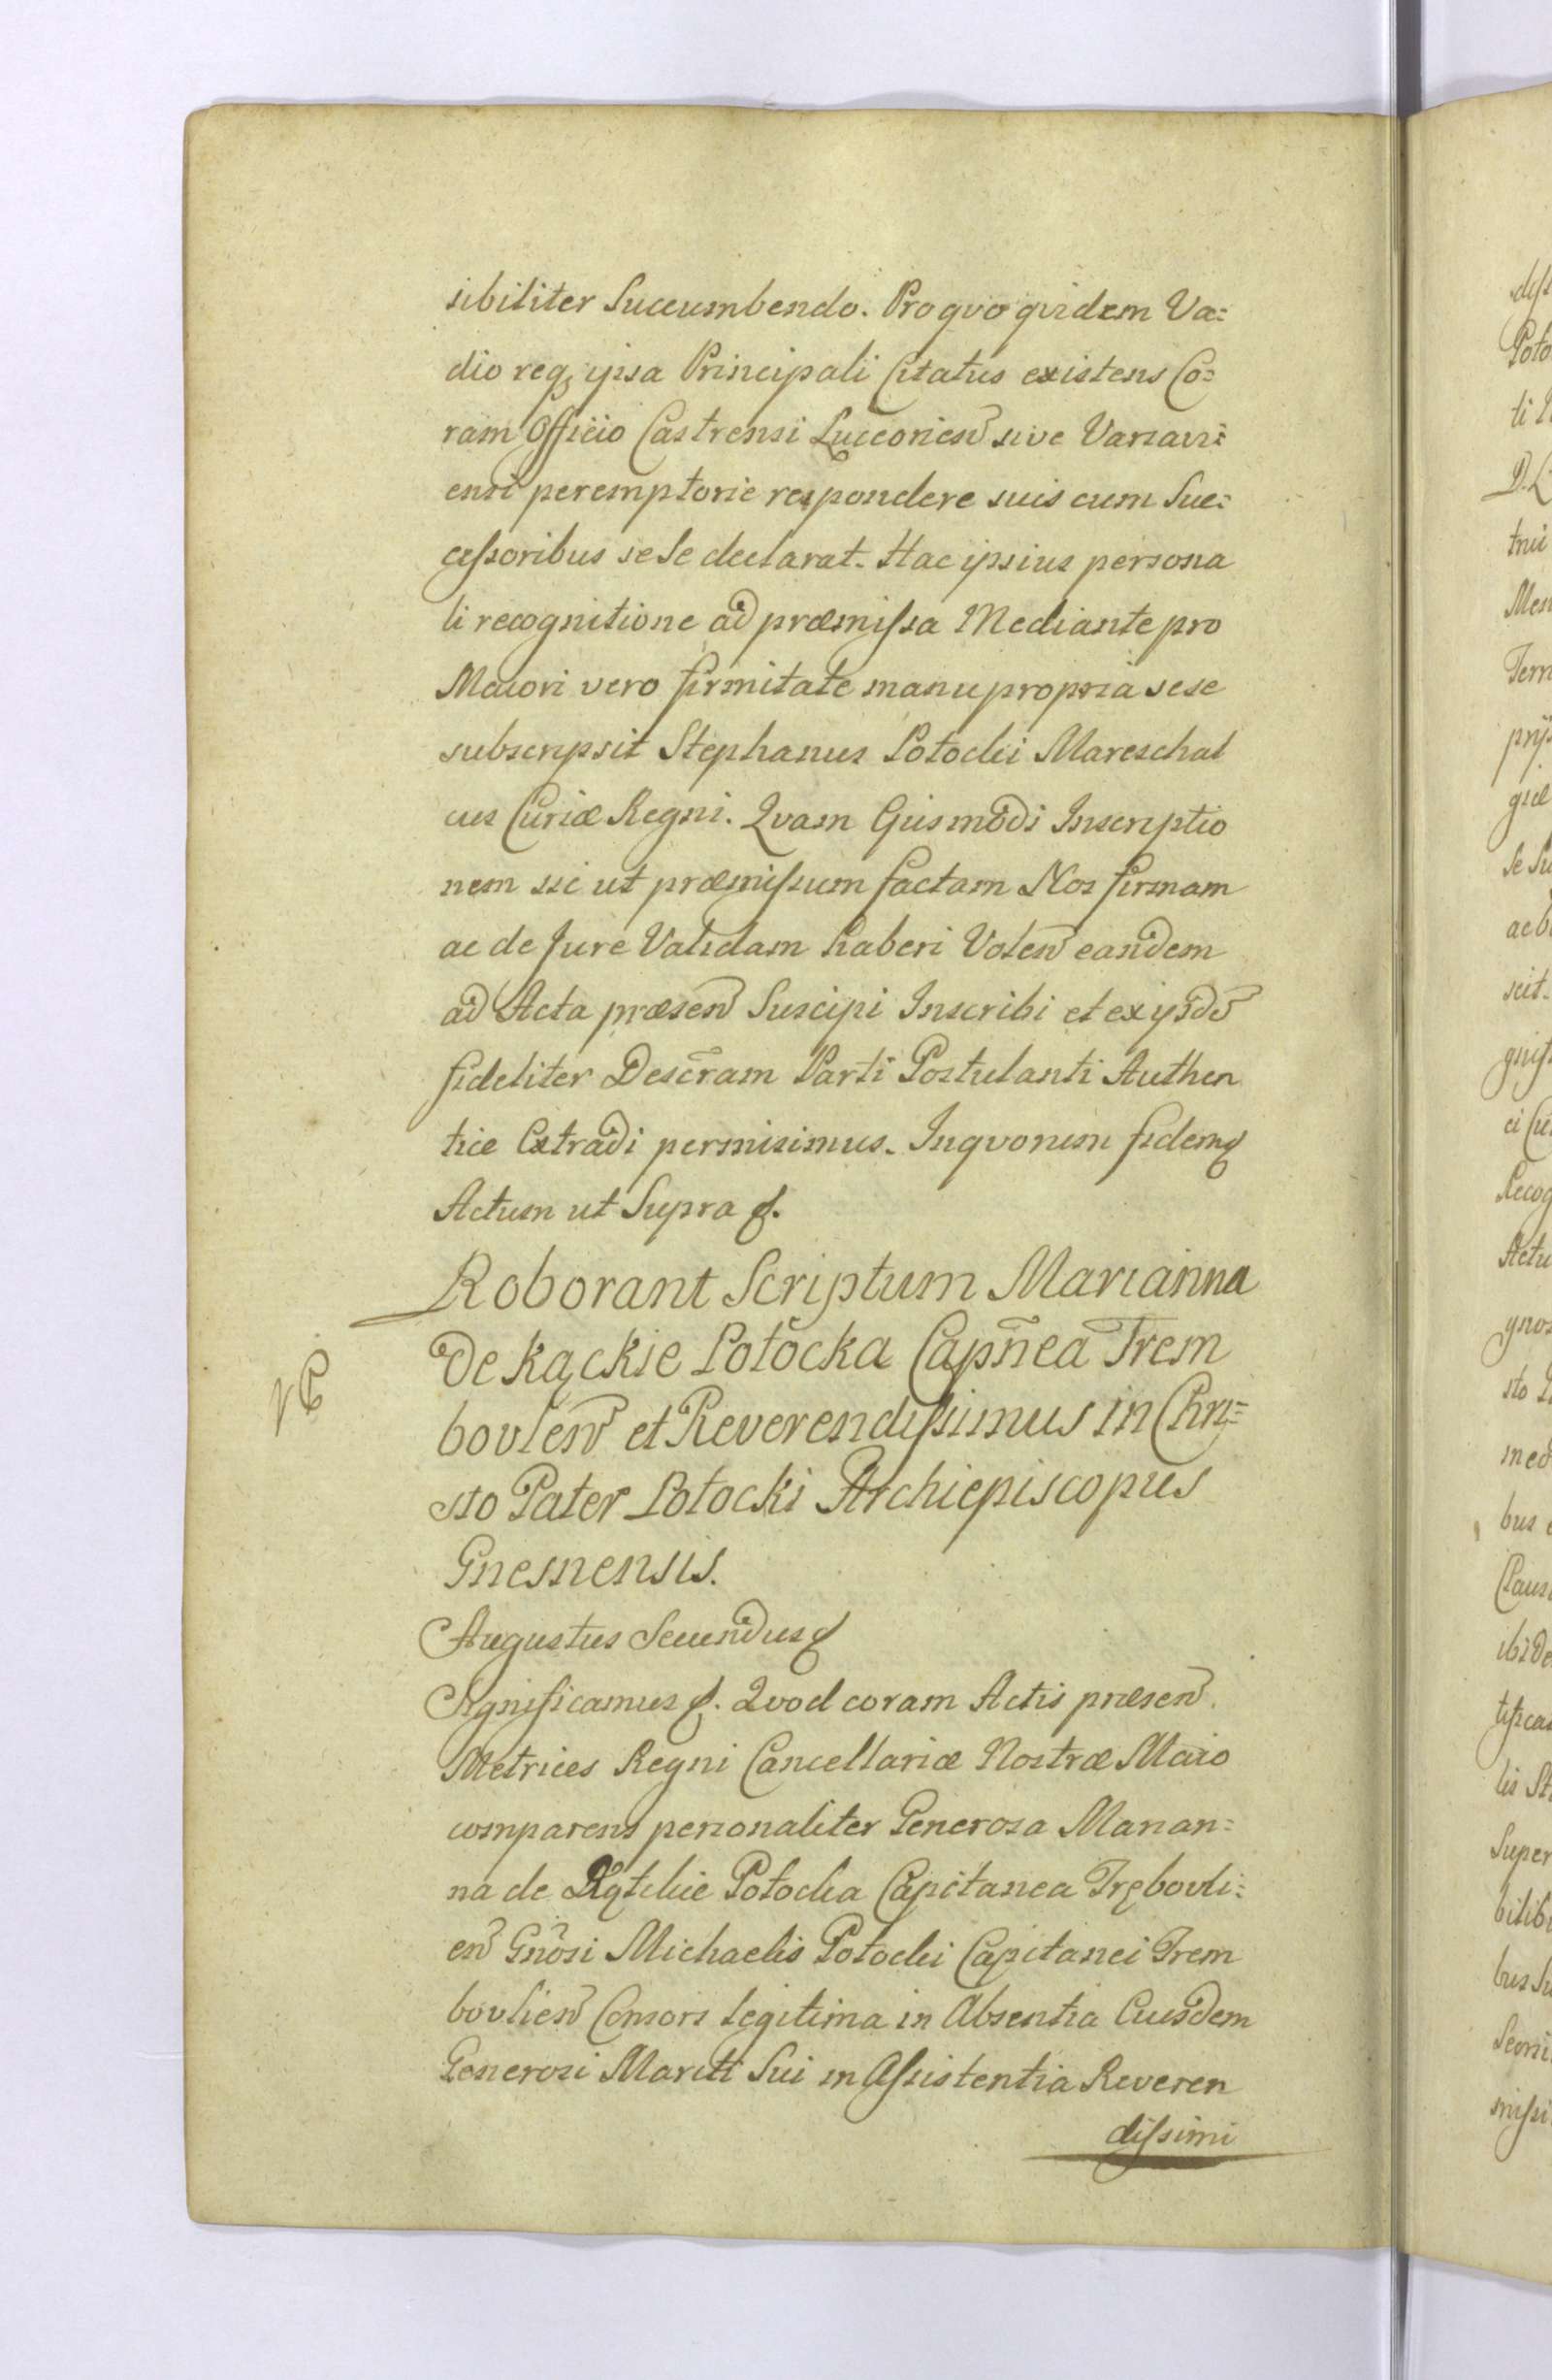 sibiliter Succumbendo. Pro quo quidem Va=
dio req; ipsa Principali Citatus existens Co=
ram Officio Castrensi Luceorien̄ sive Varsavi=
ensi peremptorie respondere suis cum Suc=
cessoribus sese declarat. Hac ipsius persona
li recognitione ad præmissa Mediante pro
Maiori vero firmitate manu propria sese
subscripsit Stephanus Potocki Mareschal
cus Curiæ Regni. Quam Eiusmodi Inscriptio
nem sic ut præmissum factam Nos firmam
ac de Jure Validam haberi Volen̄ eandem
ad Acta præsen̄ Suscipi Inscribi et ex ijsd̄
fideliter Descr̄am Parti Postulanti Authen
tice Extradi permisimus. In quorum fidem
Actum ut Supra
Roborant Scriptum Marianna
De Kąckie Potocka Capn̄ea Trem
bovlen̄ et Reverendissimus in Chri=
sto Pater Potocki Archiepiscopus
Gnesnensis.
Augustus Secundus
Significamus Quod coram Actis præsen̄.
Metrices Regni Cancellariæ Nostræ Maio
comparens personaliter Generosa Marian=
na de Kątckie Potocka Capitanea Trębovli=
en̄ Gn̄osi Michaelis Potocki Capitanei Trem
bovlien̄ Consors legitima in Absentia Eiusdem
Generosi Mariti Sui in Assistentia Reveren
dissimi